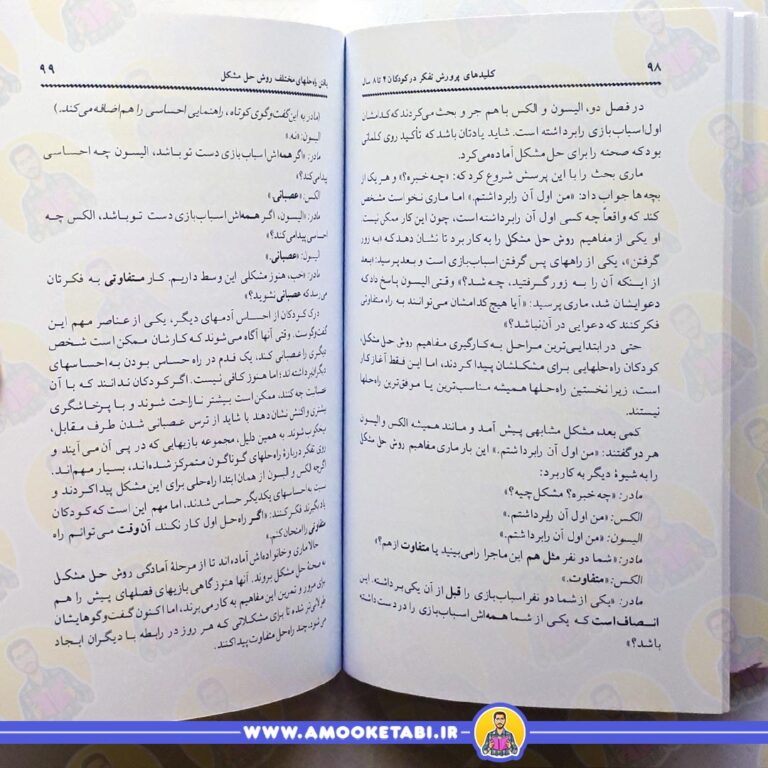 ۹۸
کلیدهای پرورش تفکر در کودکان ۴ تا ۸ سال
در فصل دو، الیسون و الکس با هم جر و بحث می‌کردند که کدامشان
اول اسباب‌بازی را برداشته است. شاید یادتان باشد که تأکید روی کلماتی
بود که صحنه را برای حل مشکل آماده می‌کرد.
ماری بحث را با این پرسش شروع کرد که: «چه خبره؟» و هر یک از
بچه‌ها جواب داد: «من اول آن را برداشتم.» اما ماری نخواست مشخص
کند که واقعاً چه کسی اول آن را برداشته است، چون این کار ممکن نیست.
او یکی از مفاهیم روش حل مشکل را به کار برد تا نشان دهد که «به زور
گرفتن»، یکی از راههای پس گرفتن اسباب‌بازی است و بعد پرسید: «بعد
از اینکه آن را به زور گرفتید، چه شد؟» وقتی الیسون پاسخ داد که
دعوایشان شد، ماری پرسید: «آیا هیچ کدامشان می‌توانند به راه متفاوتی
فکر کنند که دعوایی در آن نباشد؟»
حتی در ابتدایی‌ترین مراحل به کارگیری مفاهیم روش حل مشکل،
کودکان راه‌حلهایی برای مشکلشان پیدا کردند، اما این فقط آغاز کار
است، زیرا نخستین راه‌حلها همیشه مناسب‌ترین یا موفق‌ترین راه‌حلها
نیستند.
کمی بعد مشکل مشابهی پیش آمد و مانند همیشه الکس و الیسون
هر دو گفتند: «من اول آن را برداشتم.» این بار ماری مفاهیم روش حل مشکل
را به شیوهٔ دیگر به کار برد:
مادر: «چه خبره؟ مشکل چیه؟»
الکس: «من اول آن را برداشتم.»
الیسون: «من اول آن را برداشتم.»
مادر: «شما دو نفر مثل هم این ماجرا را می‌بینید یا متفاوت از هم؟»
الکس: «متفاوت.»
مادر: «یکی از شما دو نفر اسباب‌بازی را قبل از آن یکی برداشته. این
انصاف است که یکی از شما همه‌اش اسباب‌بازی را در دست داشته
باشد؟»
یافتن راه‌حلهای مختلف روش حل مشکل
۹۹
(مادر به این گفت‌وگوی کوتاه، راهنمایی احساسی را هم اضافه می‌کند.)
الیسون: «نه.»
مادر: «اگر همه‌اش اسباب‌بازی دست تو باشد، الیسون چه احساسی
پیدا می‌کند؟»
الکس: «عصبانی.»
مادر: «الیسون، اگر همه‌اش اسباب‌بازی دست تو باشد، الکس چه
احساسی پیدا می‌کند؟»
الیسون: «عصبانی.»
مادر: «خب، هنوز مشکلی این وسط داریم. کار متفاوتی به فکرتان
می‌رسد که عصبانی نشوید؟»
درک کودکان از احساس آدمهای دیگر، یکی از عناصر مهم این
گفت‌وگوست. وقتی آنها آگاه می‌شوند که کارشان ممکن است شخص
دیگری را عصبانی کند، یک قدم در راه حساس بودن به احساسهای
دیگران برداشته‌اند؛ اما هنوز کافی نیست. اگر کودکان ندانند که با آن
عصبانیت چه کنند، ممکن است بیشتر ناراحت شوند و با پرخاشگری
بیشتری واکنش نشان دهند یا شاید از ترس عصبانی شدن طرف مقابل،
میخکوب شوند. به همین دلیل، مجموعه بازیهایی که در پی آن می‌آیند و
روی تفکر دربارهٔ راه‌حلهای گوناگون متمرکز شده‌اند، بسیار مهم‌اند.
اگرچه الکس و الیسون از همان ابتدا راه‌حلی برای این مشکل پیدا کردند و
نسبت به احساسهای یکدیگر حساس شدند، اما مهم این است که کودکان
یاد بگیرند فکر کنند: «اگر راه‌حل اول کار نکند، آن وقت می‌توانم راه
متفاوتی را امتحان کنم.»
حالا ماری و خانواده‌اش آماده‌اند تا از مرحلهٔ آمادگی روش حل مشکل
به صحنهٔ حل مشکل بروند. آنها هنوز گاهی بازیهای فصلهای پیش را هم
برای مرور و تمرین این مفاهیم به کار می‌برند، اما اکنون گفت‌وگوهایشان
طولانی‌تر شده تا برای مشکلاتی که هر روز در رابطه با دیگران ایجاد
می‌شود، چند راه‌حل متفاوت پیدا کنند.
WWW.AMOOKETABI.IR